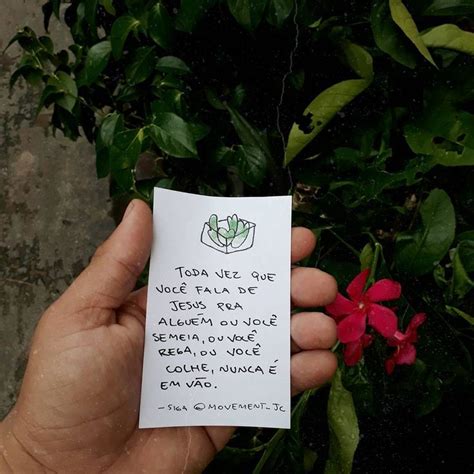 TODA VEZ QUE
VOCÊ FALA DE
JESUS PRA
ALGUÉM OU VOCÊ
SEMEIA, OU VOCÊ
REGA, OU VOCÊ
COLHE, NUNCA É
EM VÃO.
- SIGA @MOVEMENT_JC